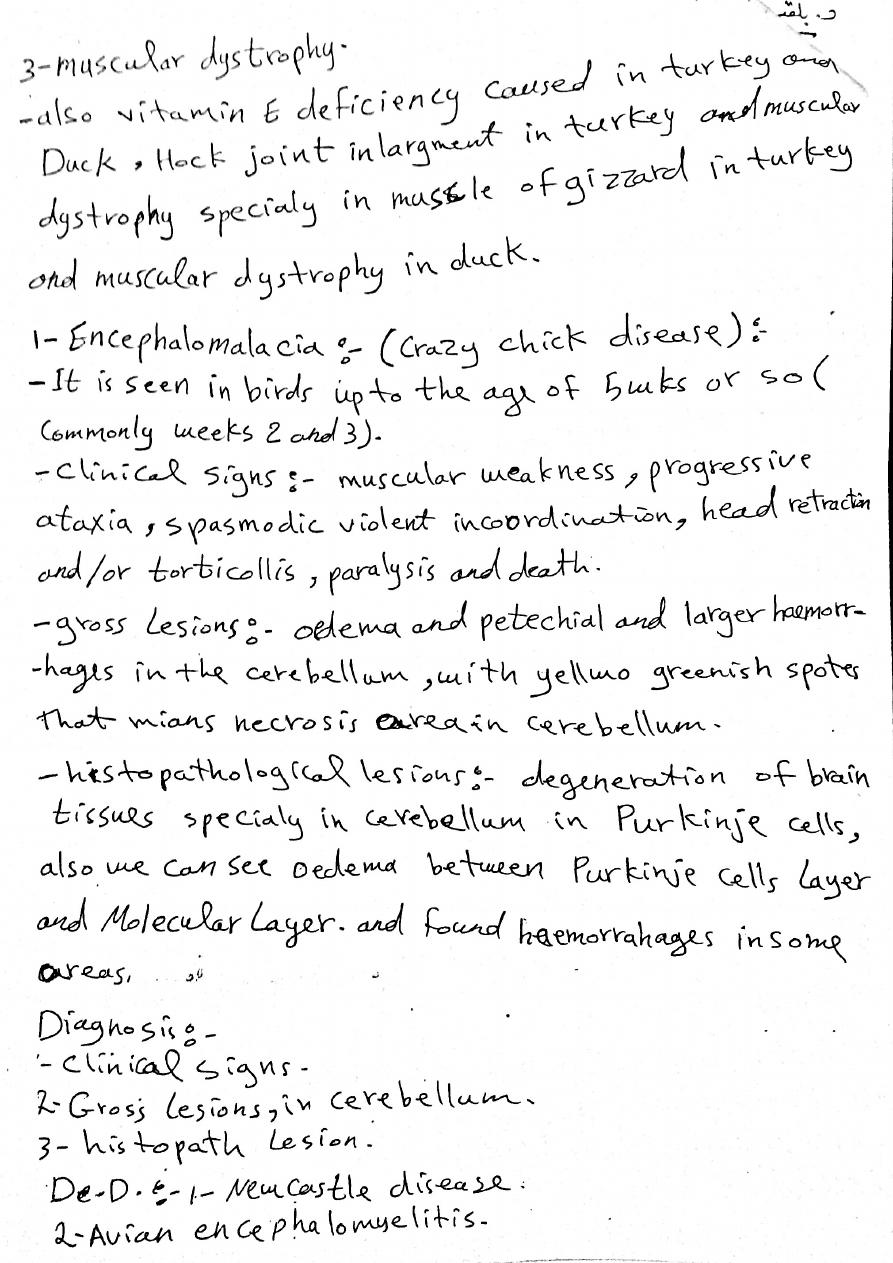 د. بلقد
3-muscular dystrophy.
-also vitamin E deficiency caused in turkey and
Duck, Hock joint inlargment in turkey and muscular
dystrophy specialy in muscle of gizzard in turkey
and muscular dystrophy in duck.
1- Encephalomalacia :- (Crazy chick disease):-
-It is seen in birds up to the age of 5wks or so (
Commonly weeks 2 and 3).
-Clinical signs :- muscular weakness, progressive
ataxia, spasmodic violent incoordination, head retraction
and/or torticollis, paralysis and death.
-gross Lesions:- oedema and petechial and larger haemorr-
-hages in the cerebellum, with yellwo greenish spotes
that mians necrosis area in cerebellum.
-histopathological lesions:- degeneration of brain
tissues specialy in cerebellum in Purkinje cells,
also we can see oedema between Purkinje cells Layer
and Molecular Layer. and found haemorrahages in some
areas.
Diagnosis:-
1- Clinical signs-
2- Gross lesions, in cerebellum.
3- histopath Lesion.
De-D. :- 1- Newcastle disease.
2- Avian encephalomyelitis.